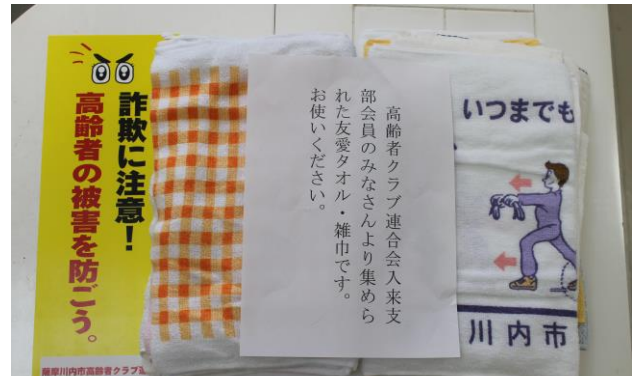 詐欺に注意！
高齢者の被害を防ごう。
薩摩川内市高齢者クラブ連
高齢者クラブ連合会入来支
部会員のみなさんより集めら
れた友愛タオル・雑巾です。
お使いください。
いつまでも
川内市